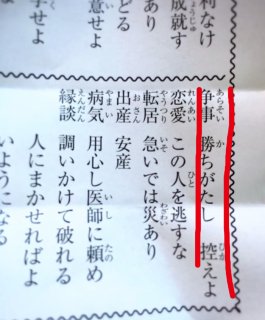 利なけ
成就す
あり
どる
意せよ
せよ
争事 勝ちがたし 控えよ
恋愛 この人を逃すな
転居 急いでは災あり
出産 安産
病気 用心し医師に頼め
縁談 調いかけて破れる
人にまかせればよ
いようになる